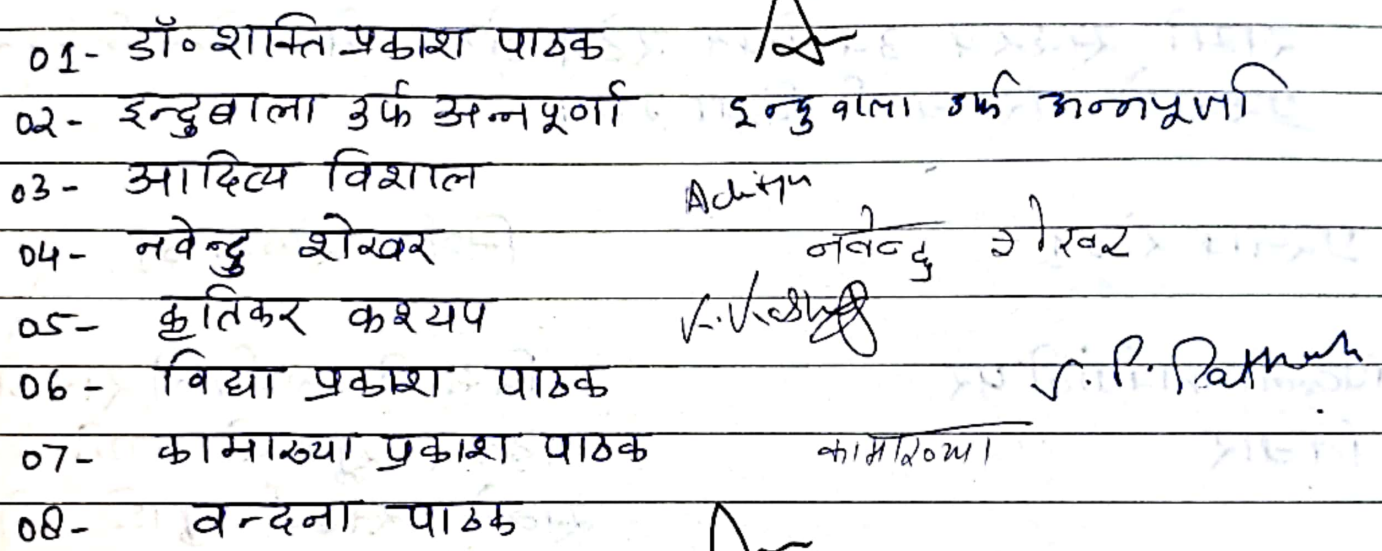 01- डॉ० शक्ति प्रकाश पाठक
02- इन्दुबाला उर्फ अन्नपूर्णा इन्दुबाला उर्फ अन्नपूर्णा
03- आदित्य विशाल Aditya
04- नवेन्दु शेखर नवेन्दु शेखर
05- कृतिकर कश्यप
06- विद्या प्रकाश पाठक V. P. Pathak
07- कामाख्या प्रकाश पाठक कामाख्या
08- वन्दना पाठक